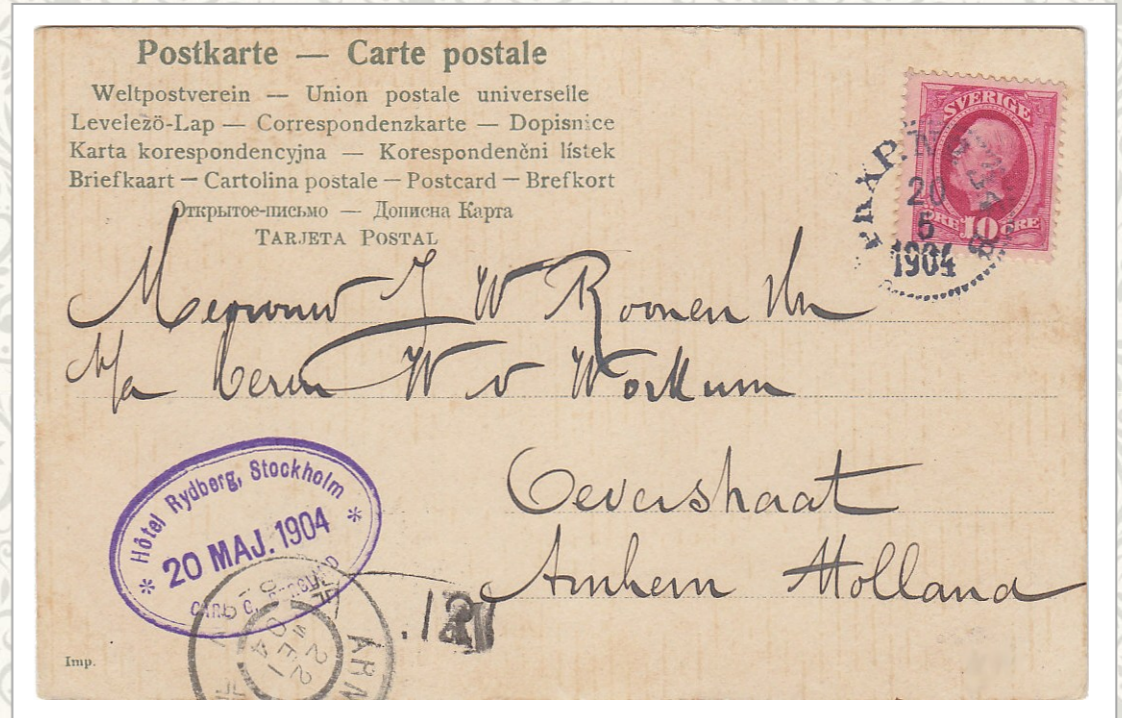 Postkarte — Carte postale
Weltpostverein — Union postale universelle
Levelező-Lap — Correspondenzkarte — Dopisnice
Karta korespondencyjna — Korespondenčni lístek
Briefkaart — Cartolina postale — Postcard — Brefkort
Открытое-письмо — Дописна Карта
TARJETA POSTAL
SVERIGE
10 ÖRE
20
5
1904
Mevrouw J W Roonen
p/a W v Workum
Arnhem Holland
Hôtel Rydberg, Stockholm
20 MAJ. 1904
22
MEI
04
Imp.